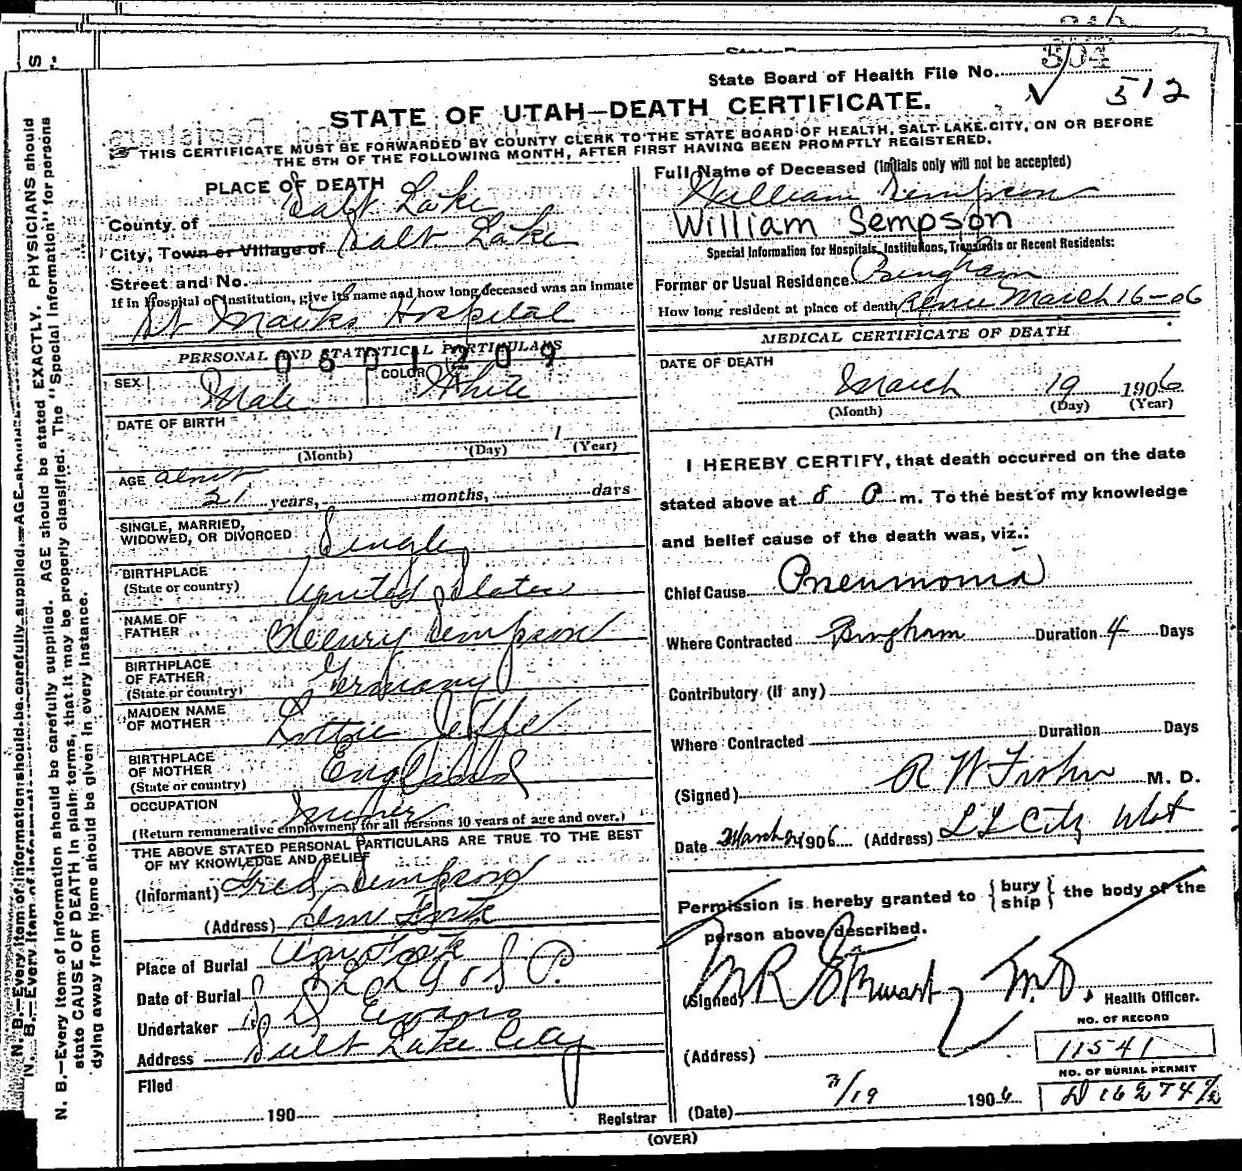 504
State Board of Health File No.
512
STATE OF UTAH—DEATH CERTIFICATE.
THIS CERTIFICATE MUST BE FORWARDED BY COUNTY CLERK TO THE STATE BOARD OF HEALTH, SALT LAKE CITY, ON OR BEFORE
THE 5TH OF THE FOLLOWING MONTH, AFTER FIRST HAVING BEEN PROMPTLY REGISTERED.
PLACE OF DEATH
County of Salt Lake
City, Town or Village of Salt Lake
Street and No.
If in Hospital or Institution, give its name and how long deceased was an inmate
St Marks Hospital
PERSONAL AND STATISTICAL PARTICULARS
0601209
SEX Male COLOR White
DATE OF BIRTH
1
(Month) (Day) (Year)
AGE about
21 years, months, days
SINGLE, MARRIED,
WIDOWED, OR DIVORCED Single
BIRTHPLACE
(State or country) United States
NAME OF
FATHER Henry Sempson
BIRTHPLACE
OF FATHER
(State or country) Germany
MAIDEN NAME
OF MOTHER Lottie
BIRTHPLACE
OF MOTHER
(State or country) England
OCCUPATION Miner
(Return remunerative employment for all persons 10 years of age and over.)
THE ABOVE STATED PERSONAL PARTICULARS ARE TRUE TO THE BEST
OF MY KNOWLEDGE AND BELIEF
(Informant) Fred Sempson
(Address) Am Fork
Place of Burial Am Fork
Date of Burial
Undertaker S D Evans
Address Salt Lake City
Filed
190
Registrar
Full Name of Deceased (Initials only will not be accepted)
William Sempson
William Sempson
Special Information for Hospitals, Institutions, Transients or Recent Residents:
Former or Usual Residence Bingham
How long resident at place of death since March 16-06
MEDICAL CERTIFICATE OF DEATH
DATE OF DEATH
March 19 1906
(Month) (Day) (Year)
I HEREBY CERTIFY, that death occurred on the date
stated above at 8 P m. To the best of my knowledge
and belief cause of the death was, viz.:
Chief Cause Pneumonia
Where Contracted Bingham Duration 4 Days
Contributory (if any)
Where Contracted Duration Days
(Signed) R W Fisher M. D.
Date March 1906 (Address) S L City Utah
Permission is hereby granted to { bury ship } the body of the
person above described.
(Signed) M R Stewart M.D. Health Officer.
NO. OF RECORD
(Address) 11541
NO. OF BURIAL PERMIT
(Date) 3/19 1906 D 16274½
(OVER)
N. B.—Every item of information should be carefully supplied. AGE should be stated EXACTLY. PHYSICIANS should
state CAUSE OF DEATH in plain terms, that it may be properly classified. The "Special Information" for persons
dying away from home should be given in every instance.